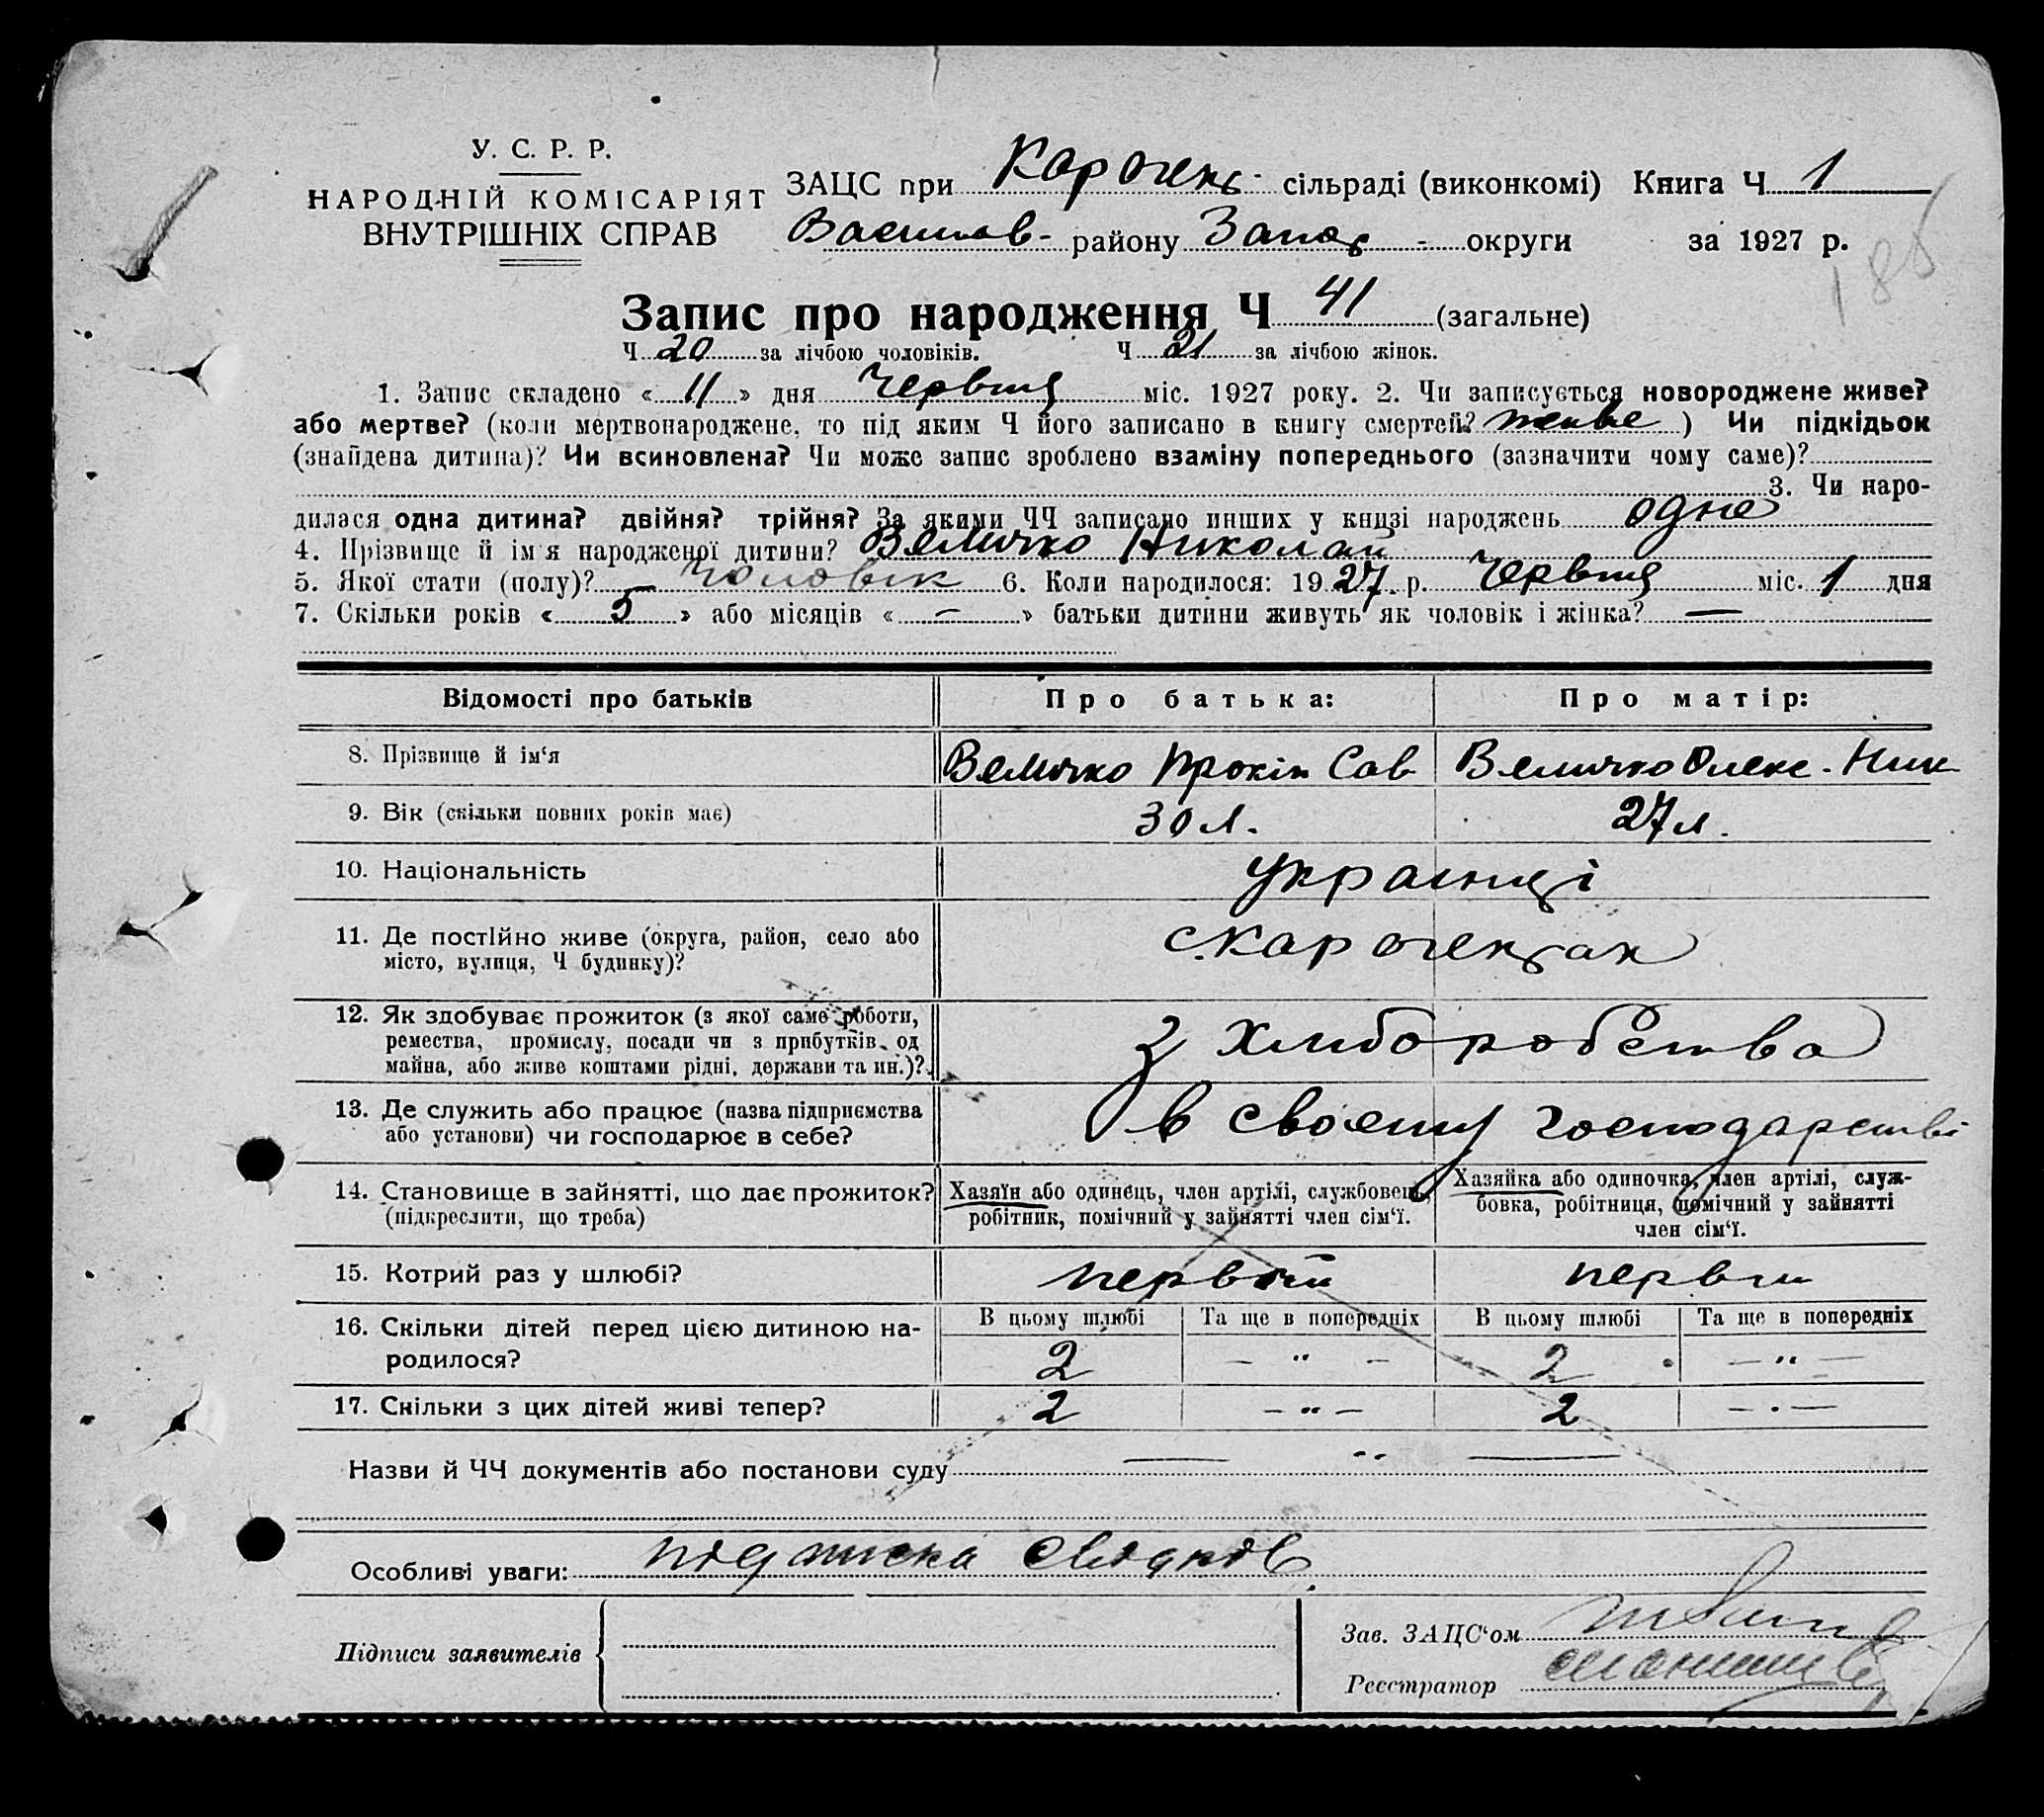 У. С. Р. Р.
НАРОДНІЙ КОМІСАРІЯТ
ВНУТРІШНІХ СПРАВ
ЗАЦС при Карачек сільраді (виконкомі) Книга Ч 1
Василів- району Запор - округи за 1927 р.
186
Запис про народження Ч 41 (загальне)
Ч 20 за лічбою чоловіків. Ч 21 за лічбою жінок.
1. Запис складено « 11 » дня Червця міс. 1927 року. 2. Чи записується новороджене живе?
або мертве? (коли мертвонароджене, то під яким Ч його записано в книгу смертей? живе ) Чи підкідьок
(знайдена дитина)? Чи всиновлена? Чи може запис зроблено взаміну попереднього (зазначити чому саме)?
3. Чи наро-
дилася одна дитина? двійня? трійня? За якими ЧЧ записано инших у книзі народжень одна
4. Прізвище й ім'я народженої дитини? Величко Николай
5. Якої стати (полу)? чоловік 6. Коли народилося: 1927 р. Червця міс. 1 дня
7. Скільки років « 5 » або місяців « - » батьки дитини живуть як чоловік і жінка? —
Відомості про батьків Про батька: Про матір:
8. Прізвище й ім'я Величко Прокіп Сав Величко Олекс. Ник
9. Вік (скільки повних років має) 30 л. 27 л.
10. Національність українці
11. Де постійно живе (округа, район, село або
місто, вулиця, Ч будинку)?
12. Як здобуває прожиток (з якої саме роботи,
ремества, промислу, посади чи з прибутків од
майна, або живе коштами рідні, держави та ин.)? З хлиборобства
13. Де служить або працює (назва підприємства
або установи) чи господарює в себе? в своєму господарстві
14. Становище в зайнятті, що дає прожиток?
(підкреслити, що треба)
Хазяїн або одинець, член артілі, службовець,
робітник, помічний у зайнятті член сім'ї.
Хазяйка або одиночка, член артілі, служ-
бовка, робітниця, помічний у зайнятті
член сім'ї.
15. Котрий раз у шлюбі? первий первий
16. Скільки дітей перед цією дитиною на-
родилося?
В цьому шлюбі Та ще в попередніх В цьому шлюбі Та ще в попередніх
2 — „ — 2 — „ —
17. Скільки з цих дітей живі тепер? 2 — „ — 2 — „ —
Назви й ЧЧ документів або постанови суду — „ —
Особливі уваги: підписка свідків.
Підписи заявителів
Зав. ЗАЦС'ом
Реєстратор